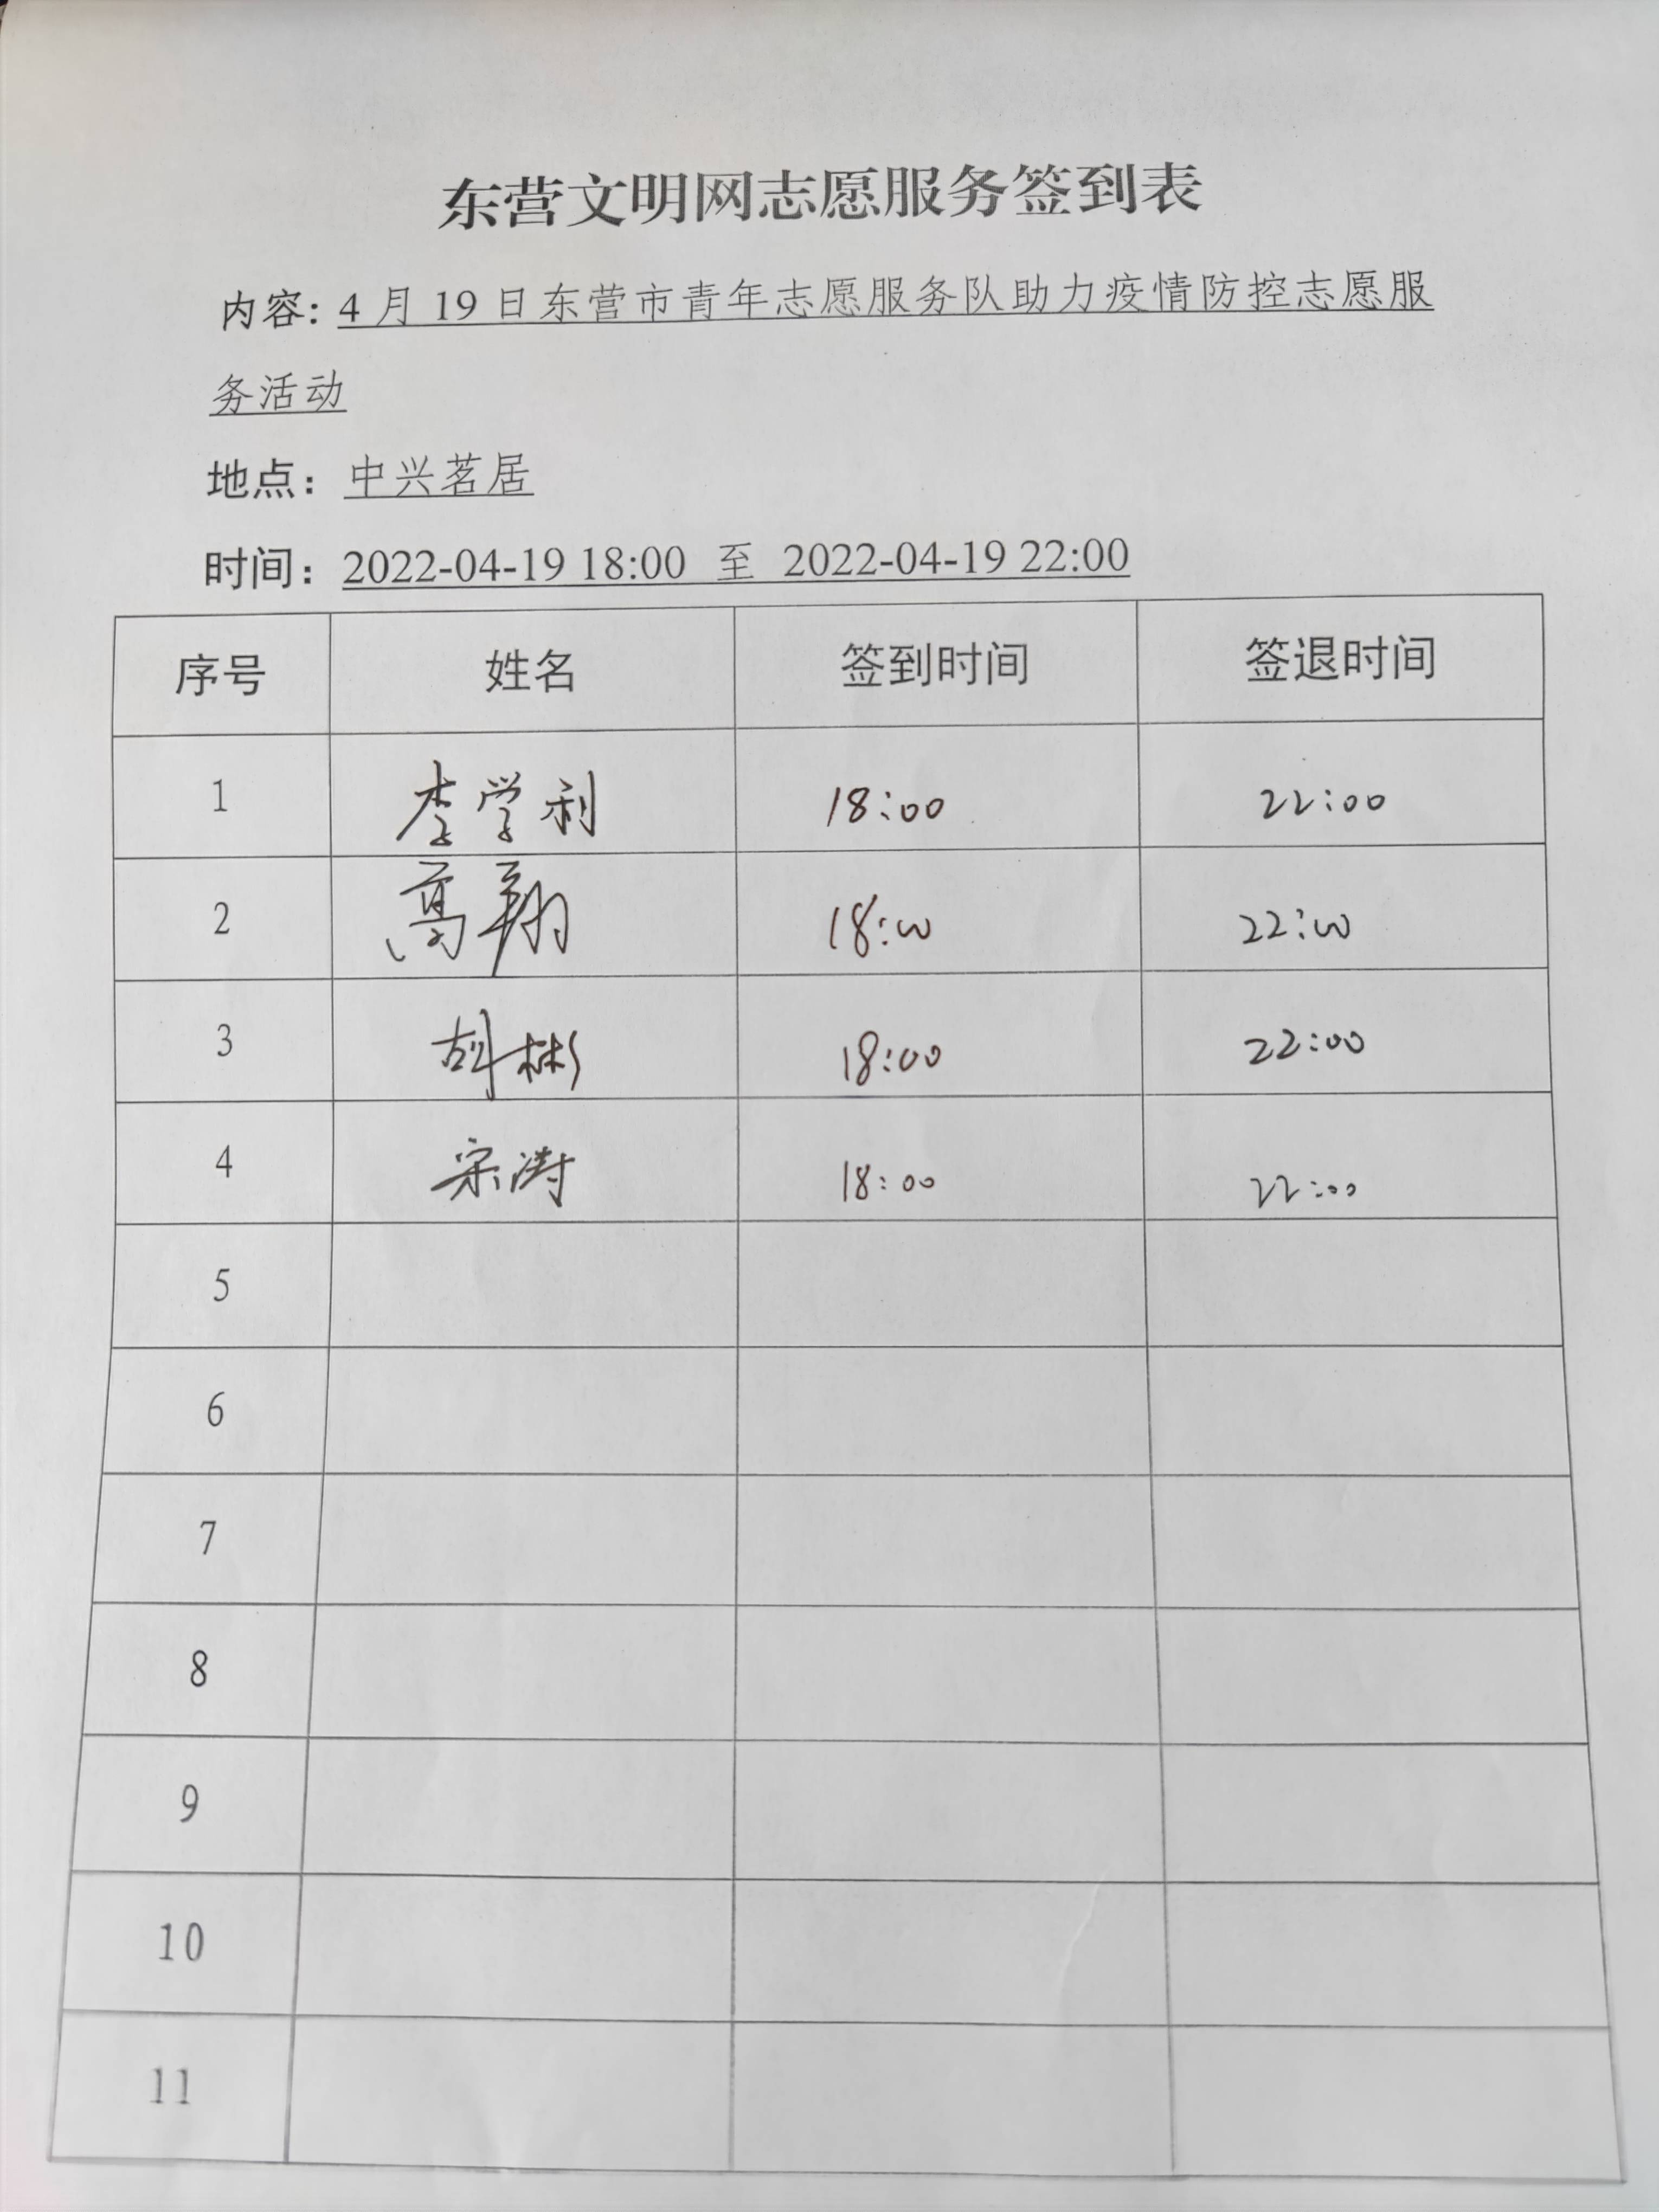 东营文明网志愿服务签到表
内容：4月19日东营市青年志愿服务队助力疫情防控志愿服
务活动
地点：中兴茗居
时间：2022-04-19 18:00 至 2022-04-19 22:00
序号 姓名 签到时间 签退时间
1 李学利 18:00 22:00
2 高翔 18:00 22:00
3 胡彬 18:00 22:00
4 宋涛 18:00 22:00
5
6
7
8
9
10
11